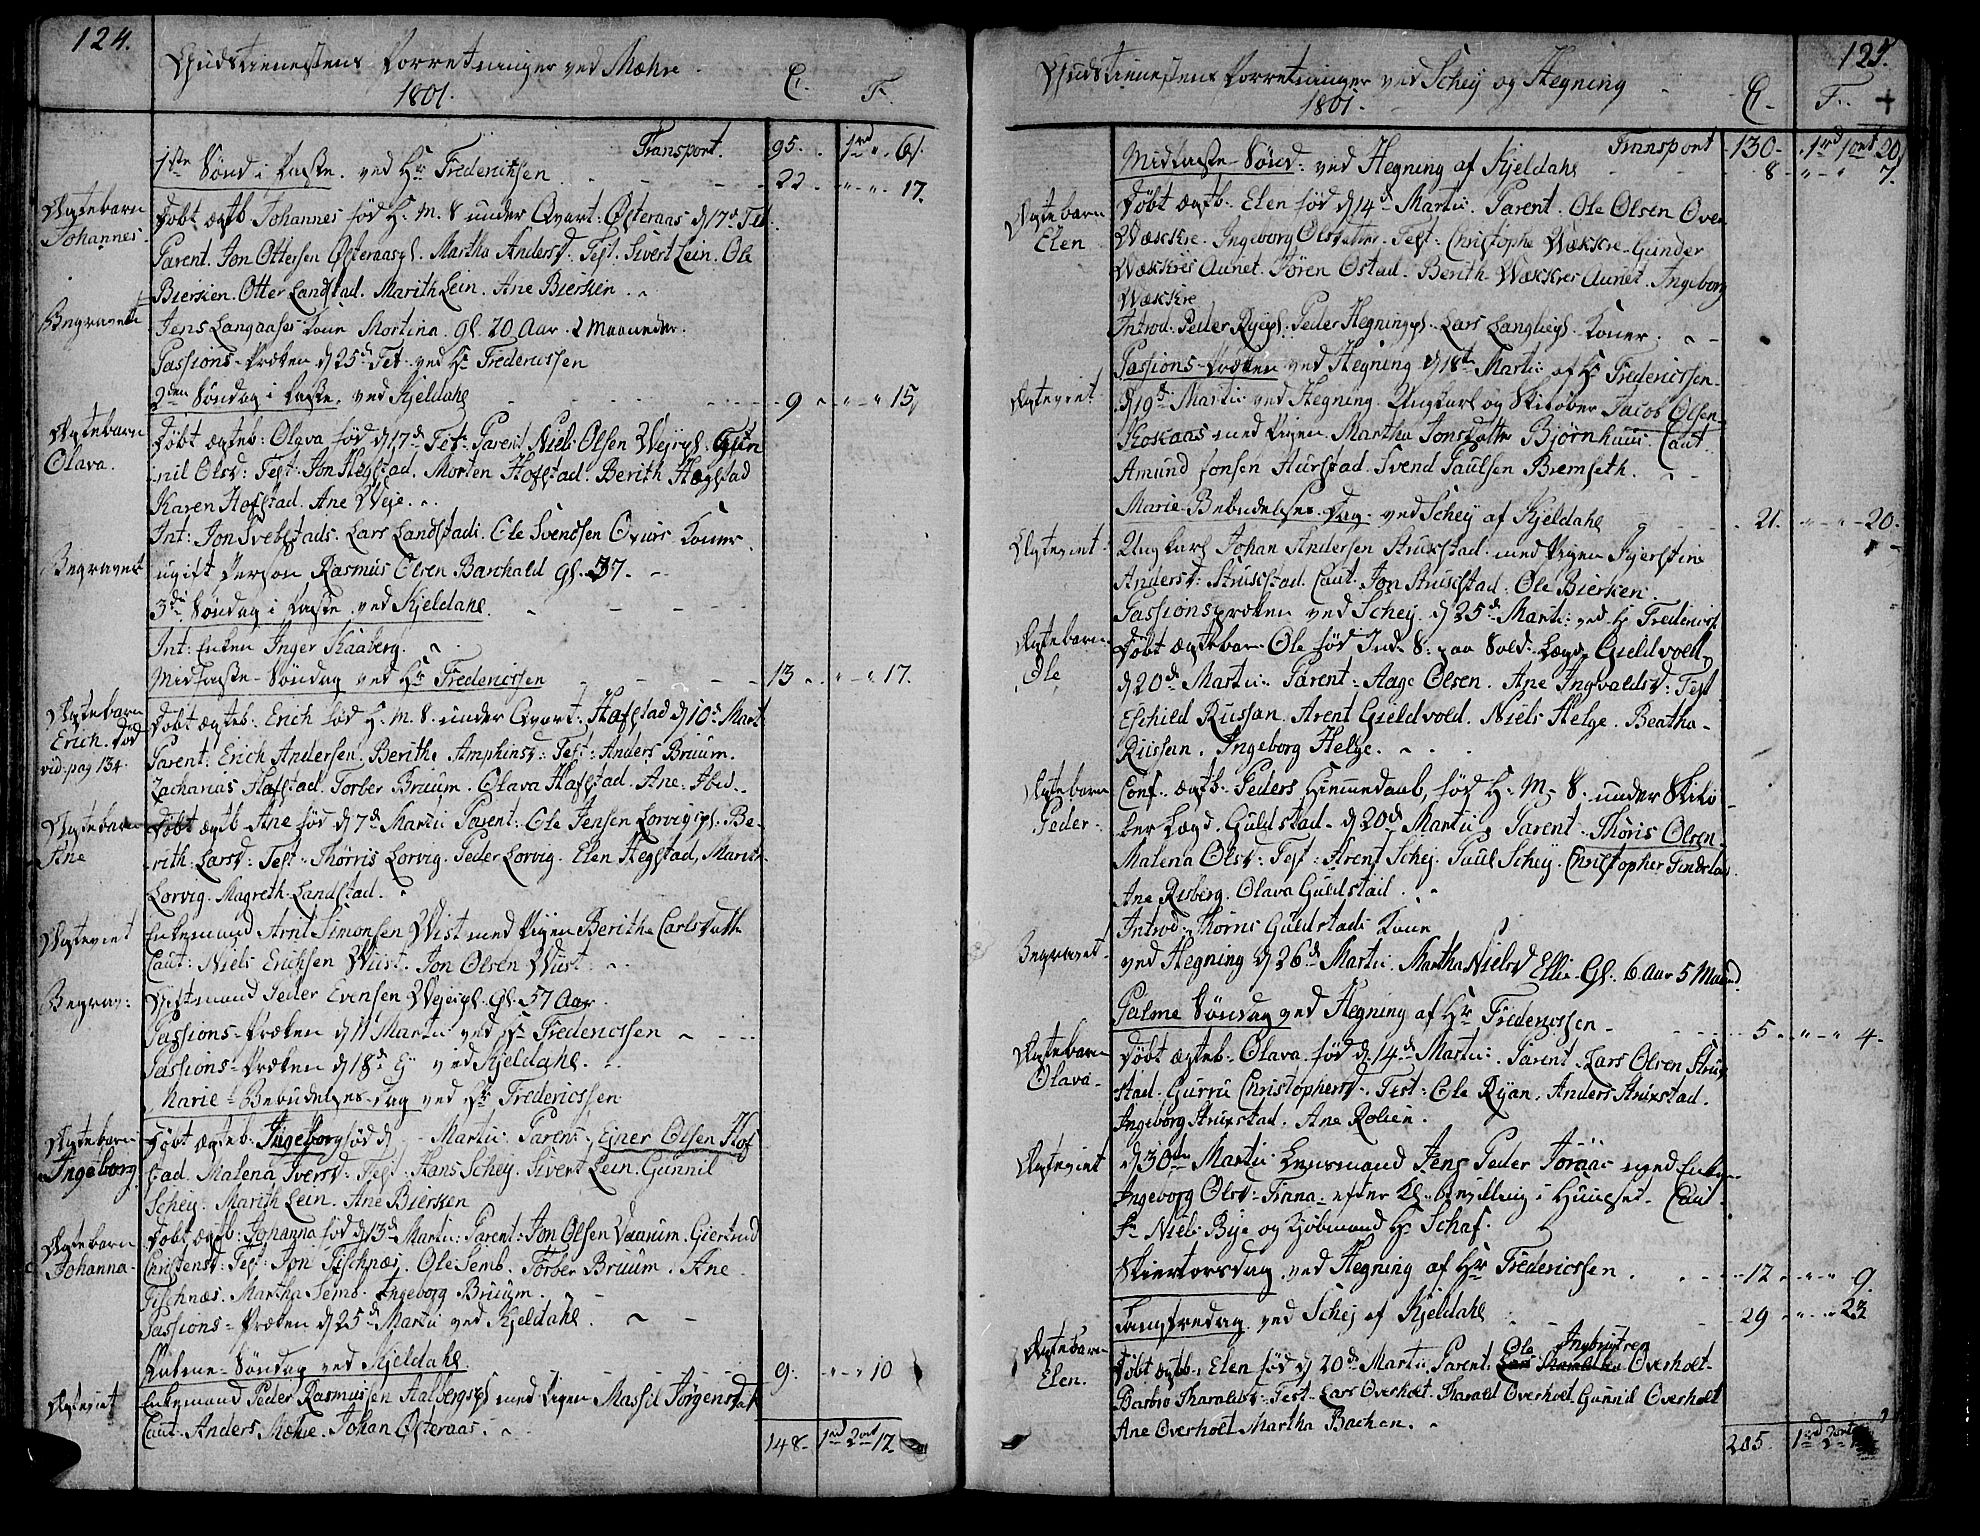 124.
Gudstienestens Forretninger ved Mæhre
1801.
C.
F.
Transport.
95.
1rd " 6s.
1ste Sønd i Faste. ved Hr Frederichsen
22
" " 17.
Ægtebarn
Johannes.
Døbt ægtb Johannes fød H. M. S under Qvart: Østeraas d 17d Feb.
Parent. Jon Ottersen Østeraaspl. Martha Andersd. Test. Sivert Lein. Ole
Biersken. Otter Landstad. Marith Lein. Ane Biersken.
Begravett
Jens Langaases Kone Mortina. gl. 20 Aar. 2 Maaneder.
Passions-Præken d 25d Feb. ved Hr Fredericssen
2den Søndag i Faste. ved Kjeldahl
9
" " 15,
Ægtebarn
Olava.
Døbt ægteb: Olava fød d 17d Feb: Parent. Niels Olsen Wejepl. Gun
nil Olsd: Test. Jon Hegstad. Morten Hofstad. Berith Hægstad
Karen Hofstad. Ane Weje.
Int: Jon Svebstads. Lars Landstads. Ole Svendsen Qvürs Koner.
Begravet
ugift Person Rasmus Olsen Barchald gl. 37.
3die Søndag i Faste. ved Kjeldahl.
Int: Enken Inger Kaaberg.
Midfaste-Søndag ved Hr Fredericssen
13
" " 17.
Ægtebarn
Erich. død
vid. pag 134.
Døbt ægteb: Erich fød H. M. S. under Qvart: Hafstad d 10d Mart
Parent: Erich Andersen. Berithe Amphinsd: Test: Anders Bruum.
Zacharias Hafstad. Torber Bruum. Olava Hafstad. Ane. Ibid.
Ægtebarn
Ane
Døbt ægtb Ane fød d 7d Martii Parent: Ole Jensen Lorvigspl. Be-
rith: Larsd: Test. Thørris Lorvig. Peder Lorvig. Elen Hegstad, Marith
Lorvig. Magreth Landstad.
Ægteviet
Enkemand Arnt Simonsen Wist med Pigen Berithe Carlsdatter
Caut: Niels Erichsen Wüst. Jon Olsen Wüst
Begrav:
Giftmand Peder Evensen Wejepl. gl. 57 Aar.
Passions-Præken d 11 Martii ved Hr Fredericssen
Passions-Præken d 18d Ej ved Kjeldahl.
Marie-Bebudelses-dag ved Hr Fredericssen
Ægtebarn
Ingeborg
Døbt ægteb. Ingeborg fød d - Martii. Parent. Ejner Olsen Hof
stad. Malena Iversd. Test. Hans Schey. Sivert Lein. Gunnil
Schey. Marith Lein. Ane Biersken
Ægtebarn
Johanna.
Døbt ægtb: Johanna fød d 13d Martii: Parent: Jon Olsen Vaarum. Giertrud
Christensd: Test: Jon Fischnæs. Ole Semb. Torber Bruum. Ane
Fischnæs. Martha Semb. Ingeborg Bruum.
Passions-Præken d 25d Martii ved Kjeldahl.
Palme-Søndag ved Kjeldahl
9.
" " 10
Ægteviet
Enkemand Peder Rasmussen Aalbergspl med Pigen Massil Jørgensdat
Caut. Anders Mæhre. Johan Østeraas.
148.
1rd 2ort 12
125.
Gudstienestens Forretninger ved Schey og Hegning
1801.
C.
F.
Transport
130
1rd 1ort 20
Midfaste-Sønd: ved Hegning af Kjeldahl
8
" " 7.
Ægtebarn
Elen
Døbt ægtb: Elen fød d 14d Martii. Parent. Ole Olsen Over
Wækkre. Ingeborg Olsdatter. Test: Christophe Wækkre. Gunder
Wækkres Aunet. Søren Østad. Berith Wækkres Aunet. Ingeborg
Wækkre
Introd: Peder Ryepl. Peder Hegningpl. Lars Langliepl. Koner.
Passions-Præken ved Hegning d 18de Martii af Hr Fredericssen.
Ægteviet
d 19de Martii ved Hegning. Ungkarl og Skiløber Jacob Olsen
Koskaas med Pigen Martha Jonsdatter Bjørnhuus. Caut
Amund Jonsen Hurstad. Svend Paulsen Biemseth.
Marie Bebudelses Dag. ved Schey af Kjeldahl
21.
" " 20.
Ægteviet
Ungkarl Johan Andersen Struxstad med Pigen Kjerstin
Andersd: Struxstad. Caut. Jon Struxstad. Ole Biersken.
Passionspræken ved Schey. d 25d Martii: ved Hr Fredericss.
Ægtebarn
Ole
Døbt ægtebar: Ole fød Ind. S. paa Sold. Lægd. Gieldvold
d 20d Martii: Parent: Aage Olsen. Ane Ingvaldsd: Test
Eschild Russan. Arent Gieldvold. Niels Helge. Beatha
Rüssan. Ingeborg Helge.
Ægtebarn
Peder
Conf: ægtb: Peders Hiemmedaab, fød H. M. S. under Skilø
ber Lægd. Guldstad. d 20d Martii, Parent. Thøris Olsen
Malena Olsd: Test: Arent Schej. Paul Schey. Christopher Findslau
Ane Risberg. Olava Guldstad.
Introd: Thøris Guldstads Kone
Begravet
ved Hegning d 26d Martii. Martha Nielsd Ellie. Gl. 6 aar 5 Maaned.
Palme Søndag ved Hegning af Hr Fredericssen
5
" " 4.
Ægtebarn
Olava
Døbt ægteb. Olava fød d 14d Martii: Parent. Lars Olsen Strux
stad. Gurru Christophersd. Test: Ole Ryan. Anders Struxstad.
Ingeborg Struxstad. Ane Rolien.
Ægteviet
d 30te Martii Lensmand Jens Peder Joraae med Enken
Ingeborg Olsd: Finna. efter Kl. bevilling i Huuset. Caut
Hr Niels Bye og Kjøbmand Hr Schaf.
Skiertorsdag ved Hegning af Hr Fredericssen
12
" " 9.
Langfredag ved Schej af Kjeldahl
29
" " 23
Ægtebarn
Elen.
Ole Ingbrigtsen
Døbt ægtb: Elen fød d 20d Martii. Parent. Overholt
Barbro Tharaldsd: Test. Lars Overholt. Tharald Overholt Gunnil Overholt
Ane Overholt Martha Bachen.
205.
1rd 2ort